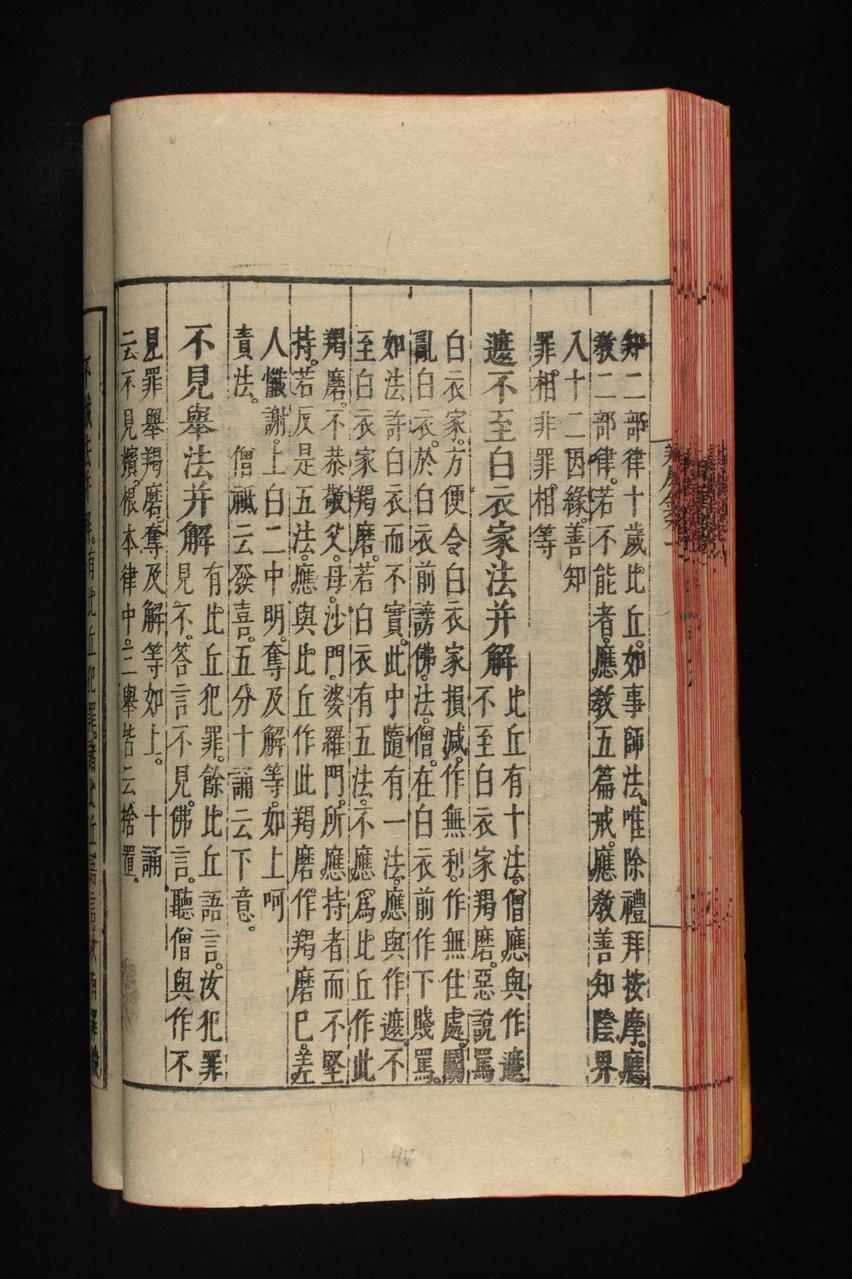 知二部律十歲比丘。如事師法。唯除禮拜按摩。應
教二部律。若不能者。應教五篇戒。應教善知陰界
入十二因緣。善知
罪相非罪相等
遮不至白衣家法并解
比丘有十法。僧應與作遮
不至白衣家羯磨。惡說罵
白衣家。方便令白衣家損減。作無利。作無住處。鬬
亂白衣。於白衣前謗佛。法。僧。在白衣前作下賤罵。
如法許白衣而不實。此中隨有一法。應與作遮不
至白衣家羯磨。若白衣有五法。不應為比丘作此
羯磨。不恭敬父。母。沙門。婆羅門。所應持者而不堅
持。若反是五法。應與比丘作此羯磨。作羯磨巳。差
人懺謝。上白二中明。奪及解等。如上呵
責法。 僧祇云發喜。五分十誦云下意。
不見舉法并解
有比丘犯罪。餘比丘語言。汝犯罪
見不。答言不見。佛言。聽僧與作不
見罪舉羯磨。奪及解等如上。 十誦
云不見擯。根本律中。三舉皆云捨置。
有比丘犯罪。諸比丘語言。汝有罪